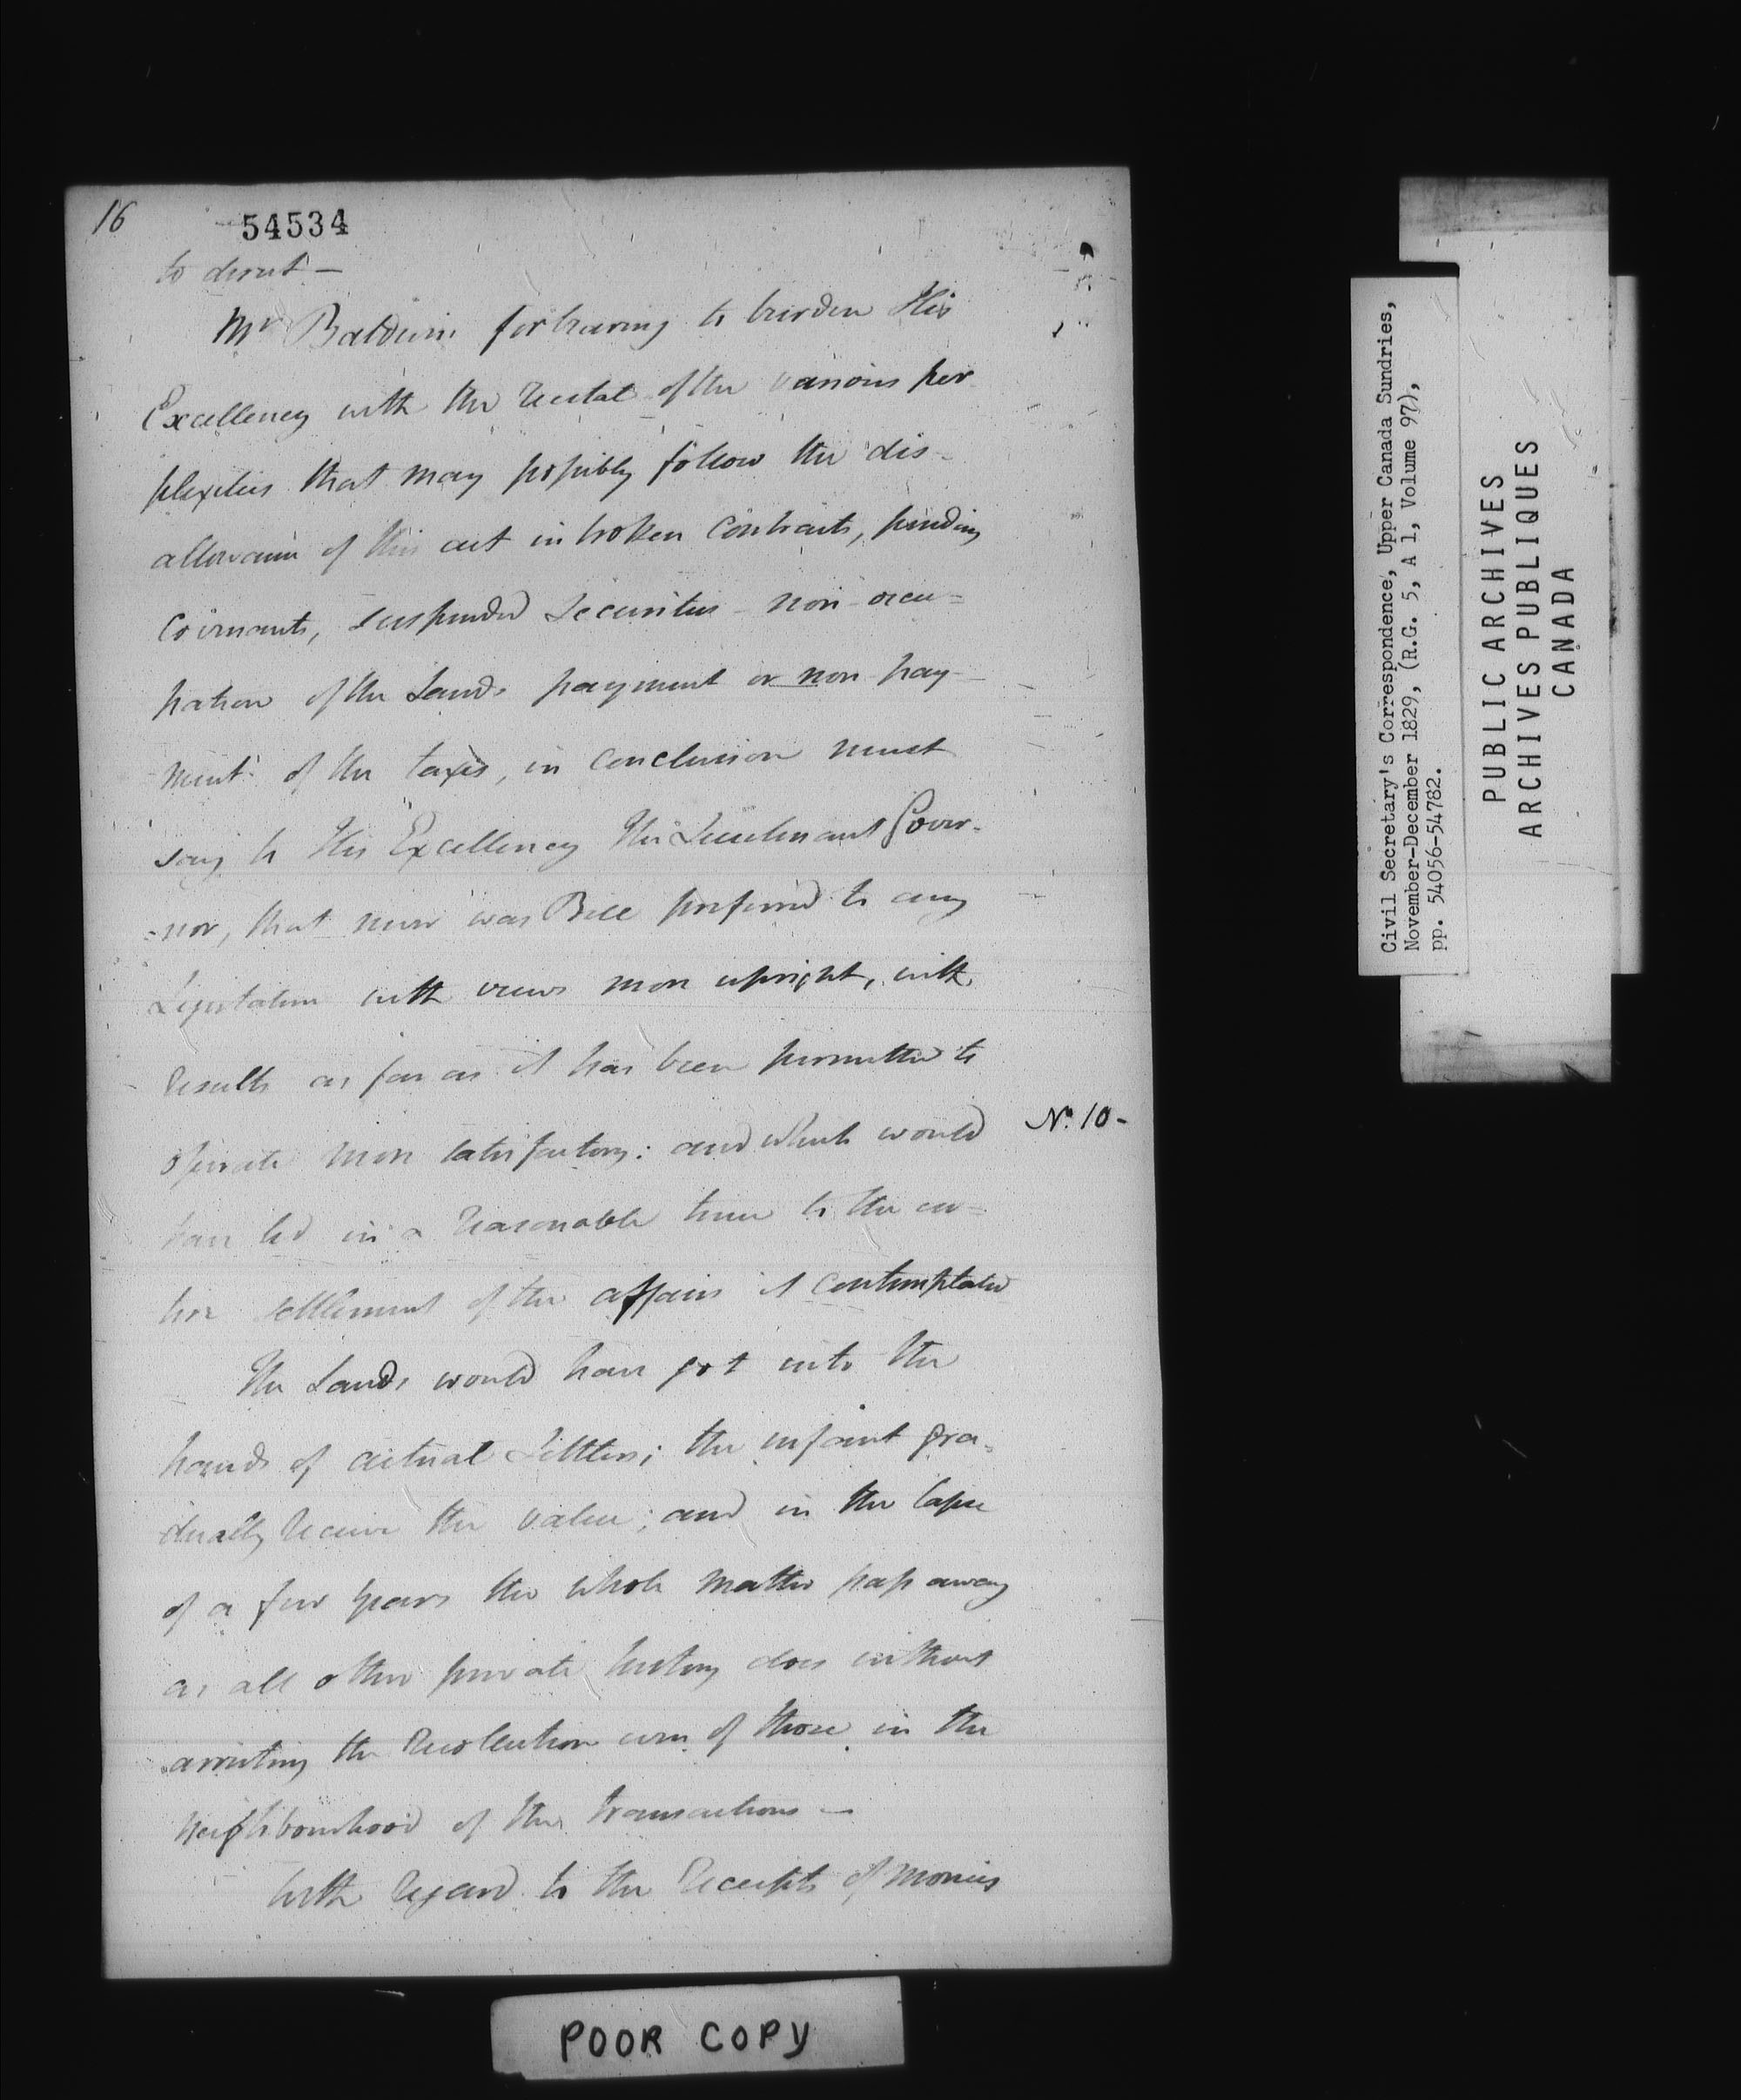 16
54534
to direct —
Mr Baldwin forbearing to burden His
Excellency with the recital of the various per
plexities that may possibly follow the dis-
allowance of this act in broken Contracts, pending
Covenants, suspended Securities - non-occu=
pation of the Lands payment or non pay-
ment of the taxes, in conclusion must
say to His Excellency The Lieutenant Gover-
=nor, that never was Bill preferred to any
Legislature with views more upright, with
results as far as it has been permitted to
operate more satisfactory: and which would
No. 10-
have led in a reasonable time to the en=
tire settlement of the affairs it contemplated
The Lands would have got into the
hands of actual Settlers; the infant gra-
dually receive the value; and in the lapse
of a few years the whole matter pass away
as all other private history does without
arresting the recollection even of those in the
neighbourhood of the transactions —
With regard to the Receipts of monies
Civil Secretary's Correspondence, Upper Canada Sundries,
November-December 1829, (R.G. 5, A 1, Volume 97),
pp. 54056-54782.
PUBLIC ARCHIVES
ARCHIVES PUBLIQUES
CANADA
POOR COPY